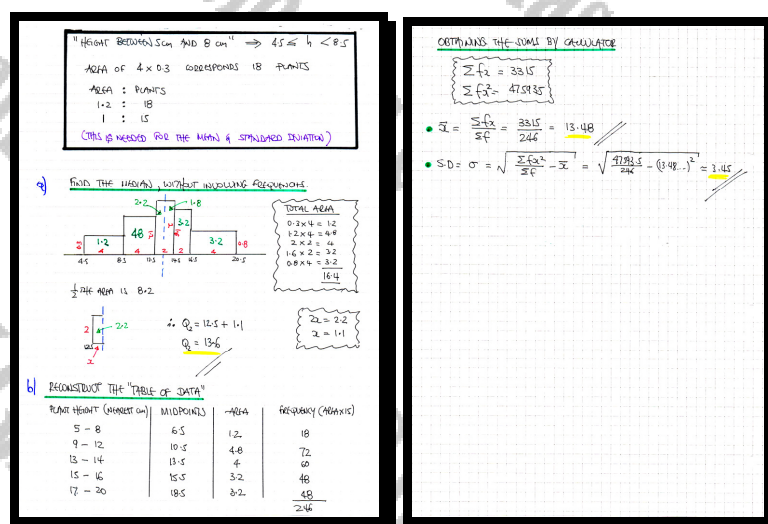 "HEIGHT BETWEEN 5cm AND 8 cm" ⇒ 4.5 ≤ h < 8.5
AREA OF 4 × 0.3 CORRESPONDS 18 PLANTS
AREA : PLANTS
1.2 : 18
1 : 15
(THIS IS NEEDED FOR THE MEAN & STANDARD DEVIATION)
a) FIND THE MEDIAN, WITHOUT INVOLVING FREQUENCIES
2.2 1.8
0.3 1.2 4.8 3.2 3.2 0.8
4 4 2 2 4
4.5 8.5 12.5 14.5 16.5 20.5
TOTAL AREA
0.3×4 = 1.2
1.2×4 = 4.8
2×2 = 4
1.6×2 = 3.2
0.8×4 = 3.2
16.4
½ THE AREA IS 8.2
2 2.2
12.5
x
∴ Q₂ = 12.5 + 1.1
Q₂ = 13.6
2x = 2.2
x = 1.1
b) RECONSTRUCT THE "TABLE OF DATA"
PLANT HEIGHT (NEAREST cm) MIDPOINTS AREA FREQUENCY (AREA×15)
5 - 8 6.5 1.2 18
9 - 12 10.5 4.8 72
13 - 14 13.5 4 60
15 - 16 15.5 3.2 48
17 - 20 18.5 3.2 48
246
OBTAINING THE SUMS BY CALCULATOR
Σfx = 3315
Σfx² = 47593.5
• x̄ = Σfx/Σf = 3315/246 = 13.48
• S.D = σ = √(Σfx²/Σf - x̄²) = √(47593.5/246 - (13.48...)²) = 3.45